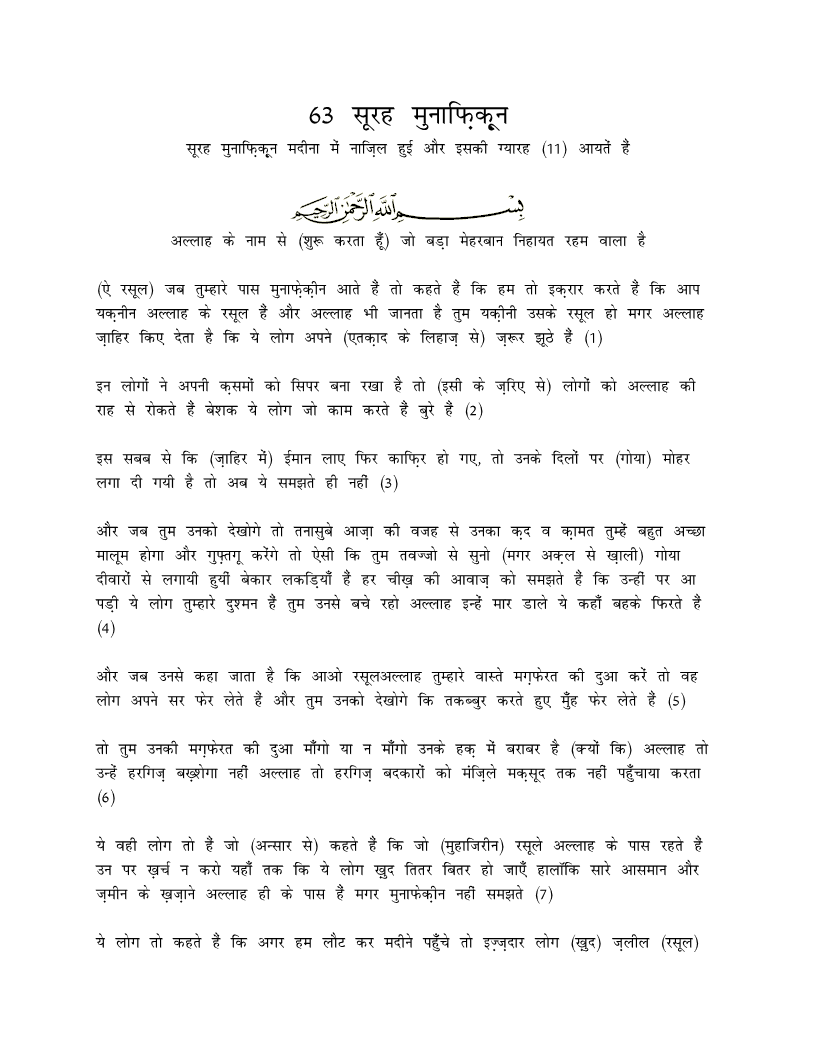 63 सूरह मुनाफ़िक़ून
सूरह मुनाफ़िक़ून मदीना में नाज़िल हुई और इसकी ग्यारह (11) आयतें हैं
بِسْمِ اللَّهِ الرَّحْمَٰنِ الرَّحِيمِ
अल्लाह के नाम से (शुरू करता हूँ) जो बड़ा मेहरबान निहायत रहम वाला है
(ऐ रसूल) जब तुम्हारे पास मुनाफ़ेक़ीन आते हैं तो कहते हैं कि हम तो इक़रार करते हैं कि आप
यक़नीन अल्लाह के रसूल हैं और अल्लाह भी जानता है तुम यक़ीनी उसके रसूल हो मगर अल्लाह
ज़ाहिर किए देता है कि ये लोग अपने (एतक़ाद के लिहाज़ से) ज़रूर झूठे हैं (1)
इन लोगों ने अपनी क़समों को सिपर बना रखा है तो (इसी के ज़रिए से) लोगों को अल्लाह की
राह से रोकते हैं बेशक ये लोग जो काम करते हैं बुरे हैं (2)
इस सबब से कि (ज़ाहिर में) ईमान लाए फिर काफ़िर हो गए, तो उनके दिलों पर (गोया) मोहर
लगा दी गयी है तो अब ये समझते ही नहीं (3)
और जब तुम उनको देखोगे तो तनासुबे आज़ा की वजह से उनका क़द व क़ामत तुम्हें बहुत अच्छा
मालूम होगा और गुफ़्तगू करेंगे तो ऐसी कि तुम तवज्जो से सुनो (मगर अक़्ल से ख़ाली) गोया
दीवारों से लगायी हुयीं बेकार लकड़ियाँ हैं हर चीख़ की आवाज़ को समझते हैं कि उन्हीं पर आ
पड़ी ये लोग तुम्हारे दुश्मन हैं तुम उनसे बचे रहो अल्लाह इन्हें मार डाले ये कहाँ बहके फिरते हैं
(4)
और जब उनसे कहा जाता है कि आओ रसूलअल्लाह तुम्हारे वास्ते मग़फेरत की दुआ करें तो वह
लोग अपने सर फेर लेते हैं और तुम उनको देखोगे कि तकब्बुर करते हुए मुँह फेर लेते हैं (5)
तो तुम उनकी मग़फेरत की दुआ माँगो या न माँगो उनके हक़ में बराबर है (क्यों कि) अल्लाह तो
उन्हें हरगिज़ बख़्शेगा नहीं अल्लाह तो हरगिज़ बदकारों को मंज़िले मक़सूद तक नहीं पहुँचाया करता
(6)
ये वही लोग तो हैं जो (अन्सार से) कहते हैं कि जो (मुहाजिरीन) रसूले अल्लाह के पास रहते हैं
उन पर ख़र्च न करो यहाँ तक कि ये लोग ख़ुद तितर बितर हो जाएँ हालॉकि सारे आसमान और
ज़मीन के ख़ज़ाने अल्लाह ही के पास हैं मगर मुनाफेक़ीन नहीं समझते (7)
ये लोग तो कहते हैं कि अगर हम लौट कर मदीने पहुँचे तो इज़्ज़दार लोग (ख़ुद) ज़लील (रसूल)